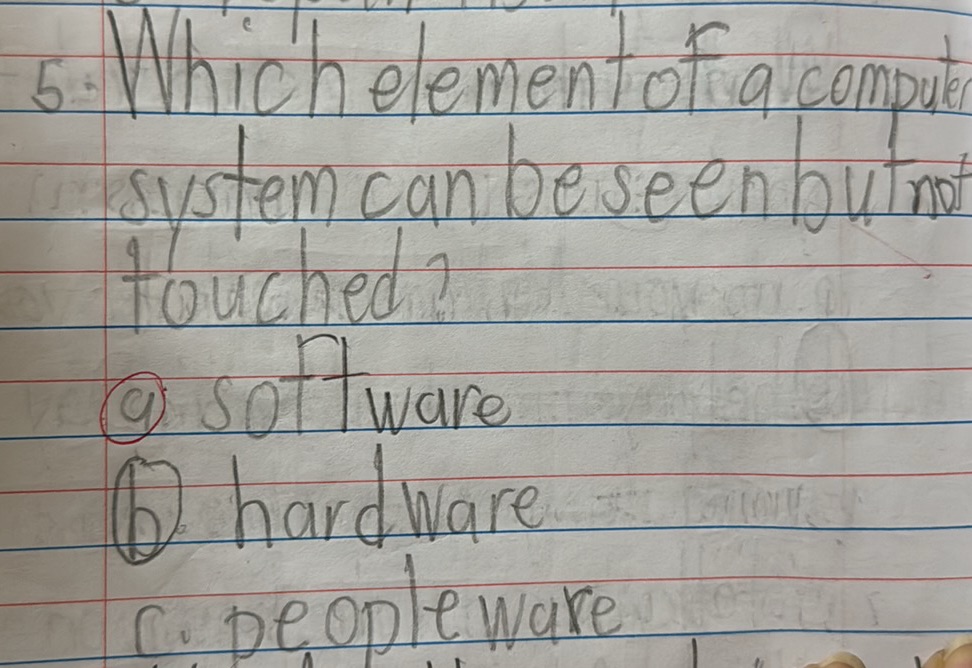 5. Which element of a computer
system can be seen but not
touched?
a. software
b. hardware
c. peopleware